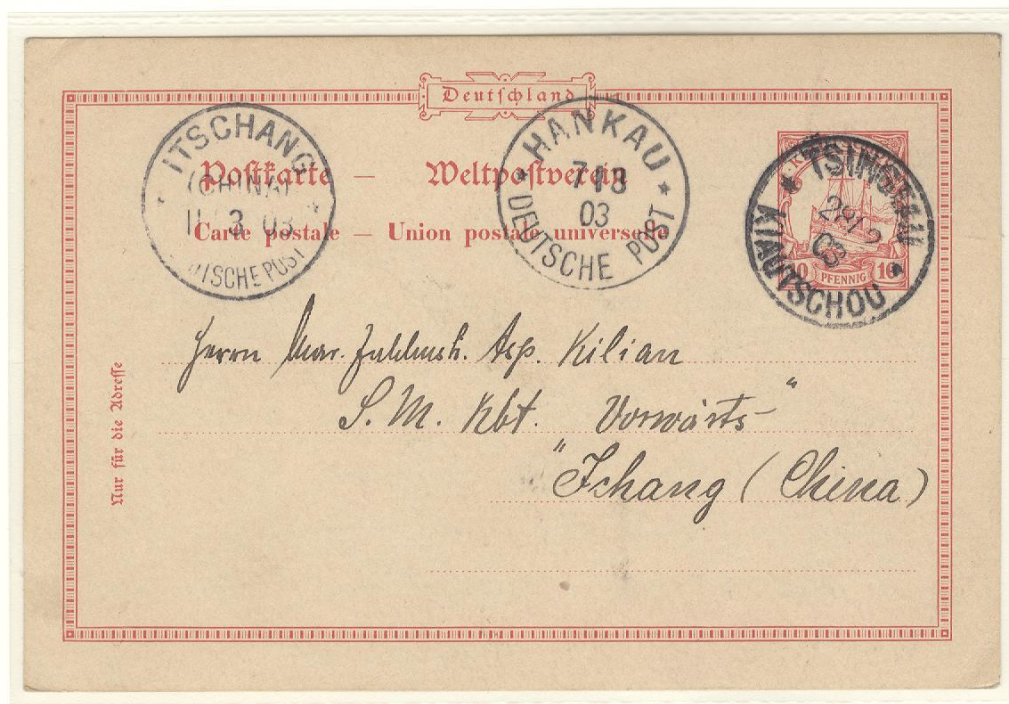 Deutschland
Postkarte — Weltpostverein
Carte postale — Union postale universelle
ITSCHANG
(CHINA)
11 3 03
DEUTSCHE POST
HANKAU
7 | 3
03
DEUTSCHE POST
TSINGTAU
03
KIAUTSCHOU
10 PFENNIG 10
Herrn Mar. Zahlmstr. Asp. Kilian
S. M. Kbt. Vorwärts"
"Ichang (China)
Nur für die Adresse